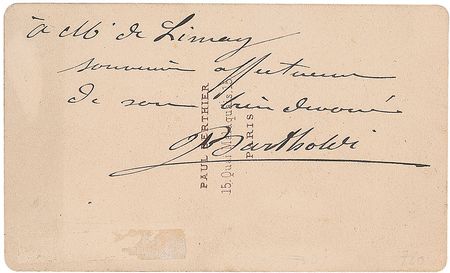 à Mr de Limay
souvenir affectueux
de son bien dévoué
Bartholdi
PAUL BERTHIER
15, Quai Malaquais, 15
PARIS
720